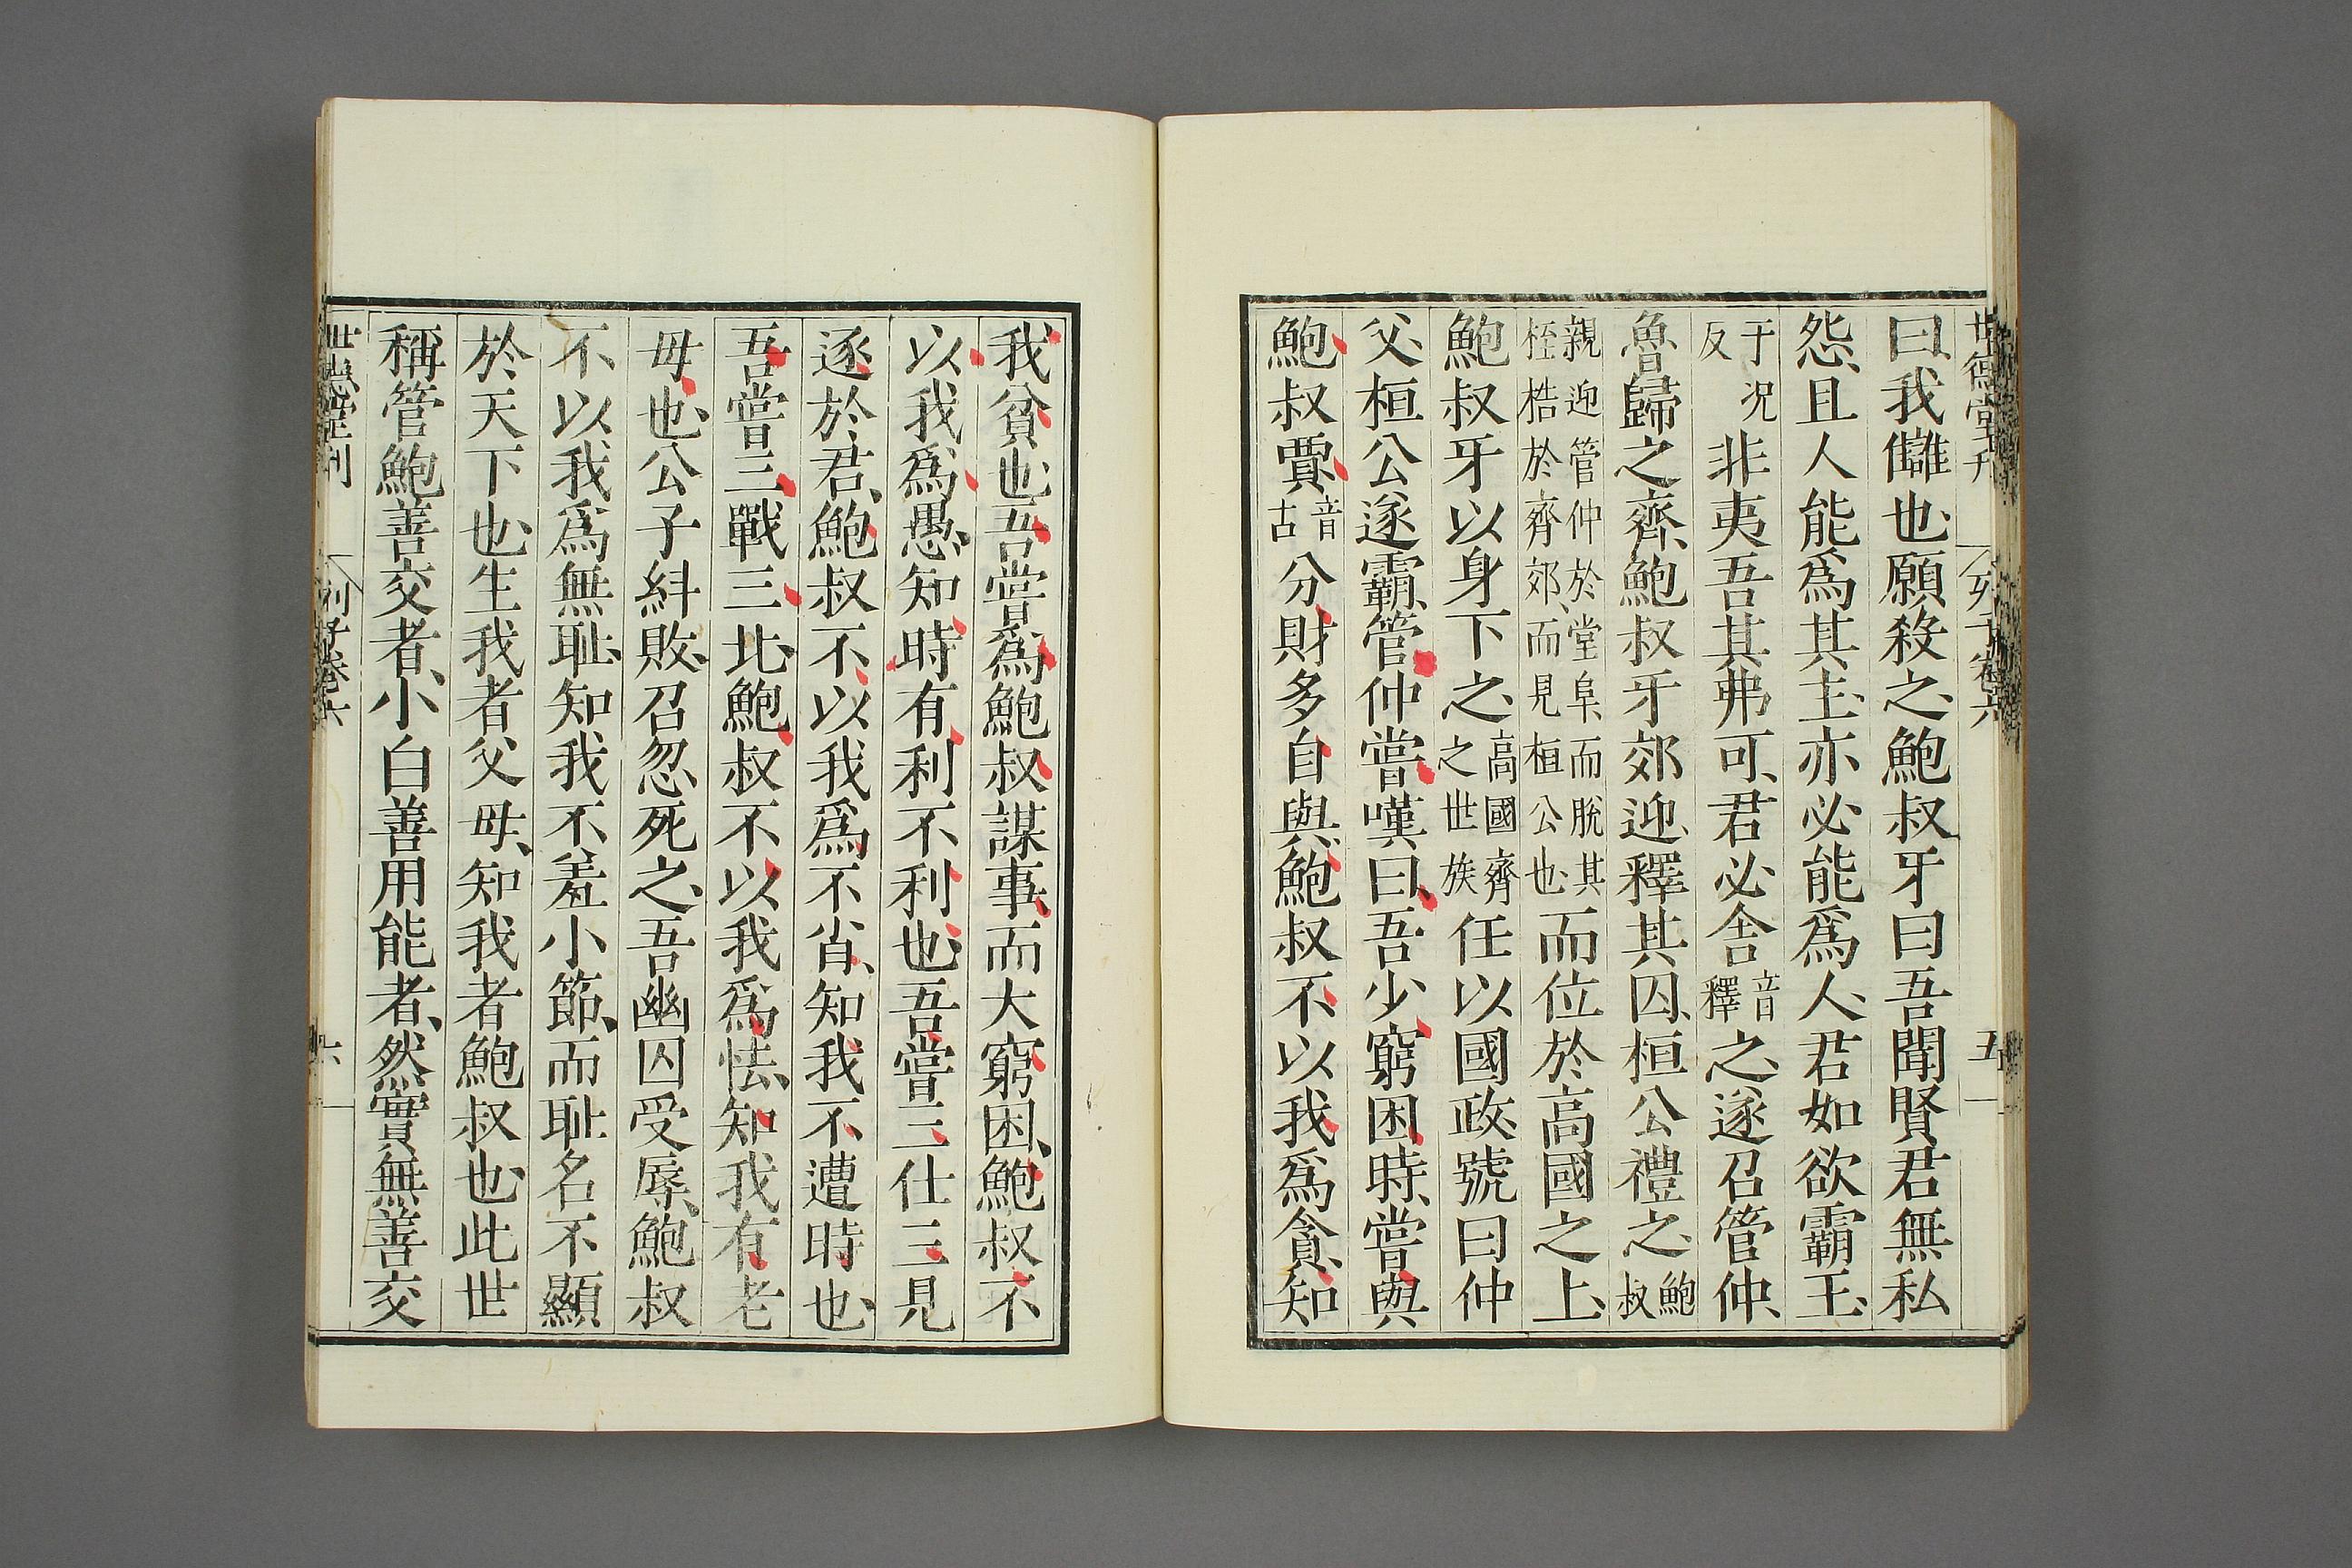 世德堂刊 列子卷六 五
曰、我讎也、願殺之、鮑叔牙曰吾聞賢君無私
怨、且人能爲其主、亦必能爲人君如欲霸王、
于況反非夷吾其弗可、君必舍音釋之、遂召管仲、
魯歸之齊、鮑叔牙郊迎、釋其囚、桓公禮之、鮑叔
親迎管仲於堂阜、而脫其桎梏於齊郊、而見桓公也、而位於高國之上、
鮑叔牙以身下之、高國齊之世族任以國政號曰仲
父、桓公遂霸、管仲嘗嘆曰、吾少、窮困時、嘗與
鮑叔賈、音古分財多自與、鮑叔不以我爲貪、知
我貧也、吾嘗爲鮑叔謀事、而大窮困、鮑叔不
以我爲愚、知時有利不利也、吾嘗三仕三見
逐於君、鮑叔不以我爲不肖、知我不遭時也、
吾嘗三戰三北、鮑叔不以我爲怯、知我有老
母也、公子糾敗、召忽死之、吾幽囚受辱、鮑叔
不以我爲無恥、知我不羞小節、而恥名不顯
於天下也、生我者父母、知我者鮑叔也、此世
稱管鮑善交者、小白善用能者、然實無善交
世德堂刊 列子卷六 六